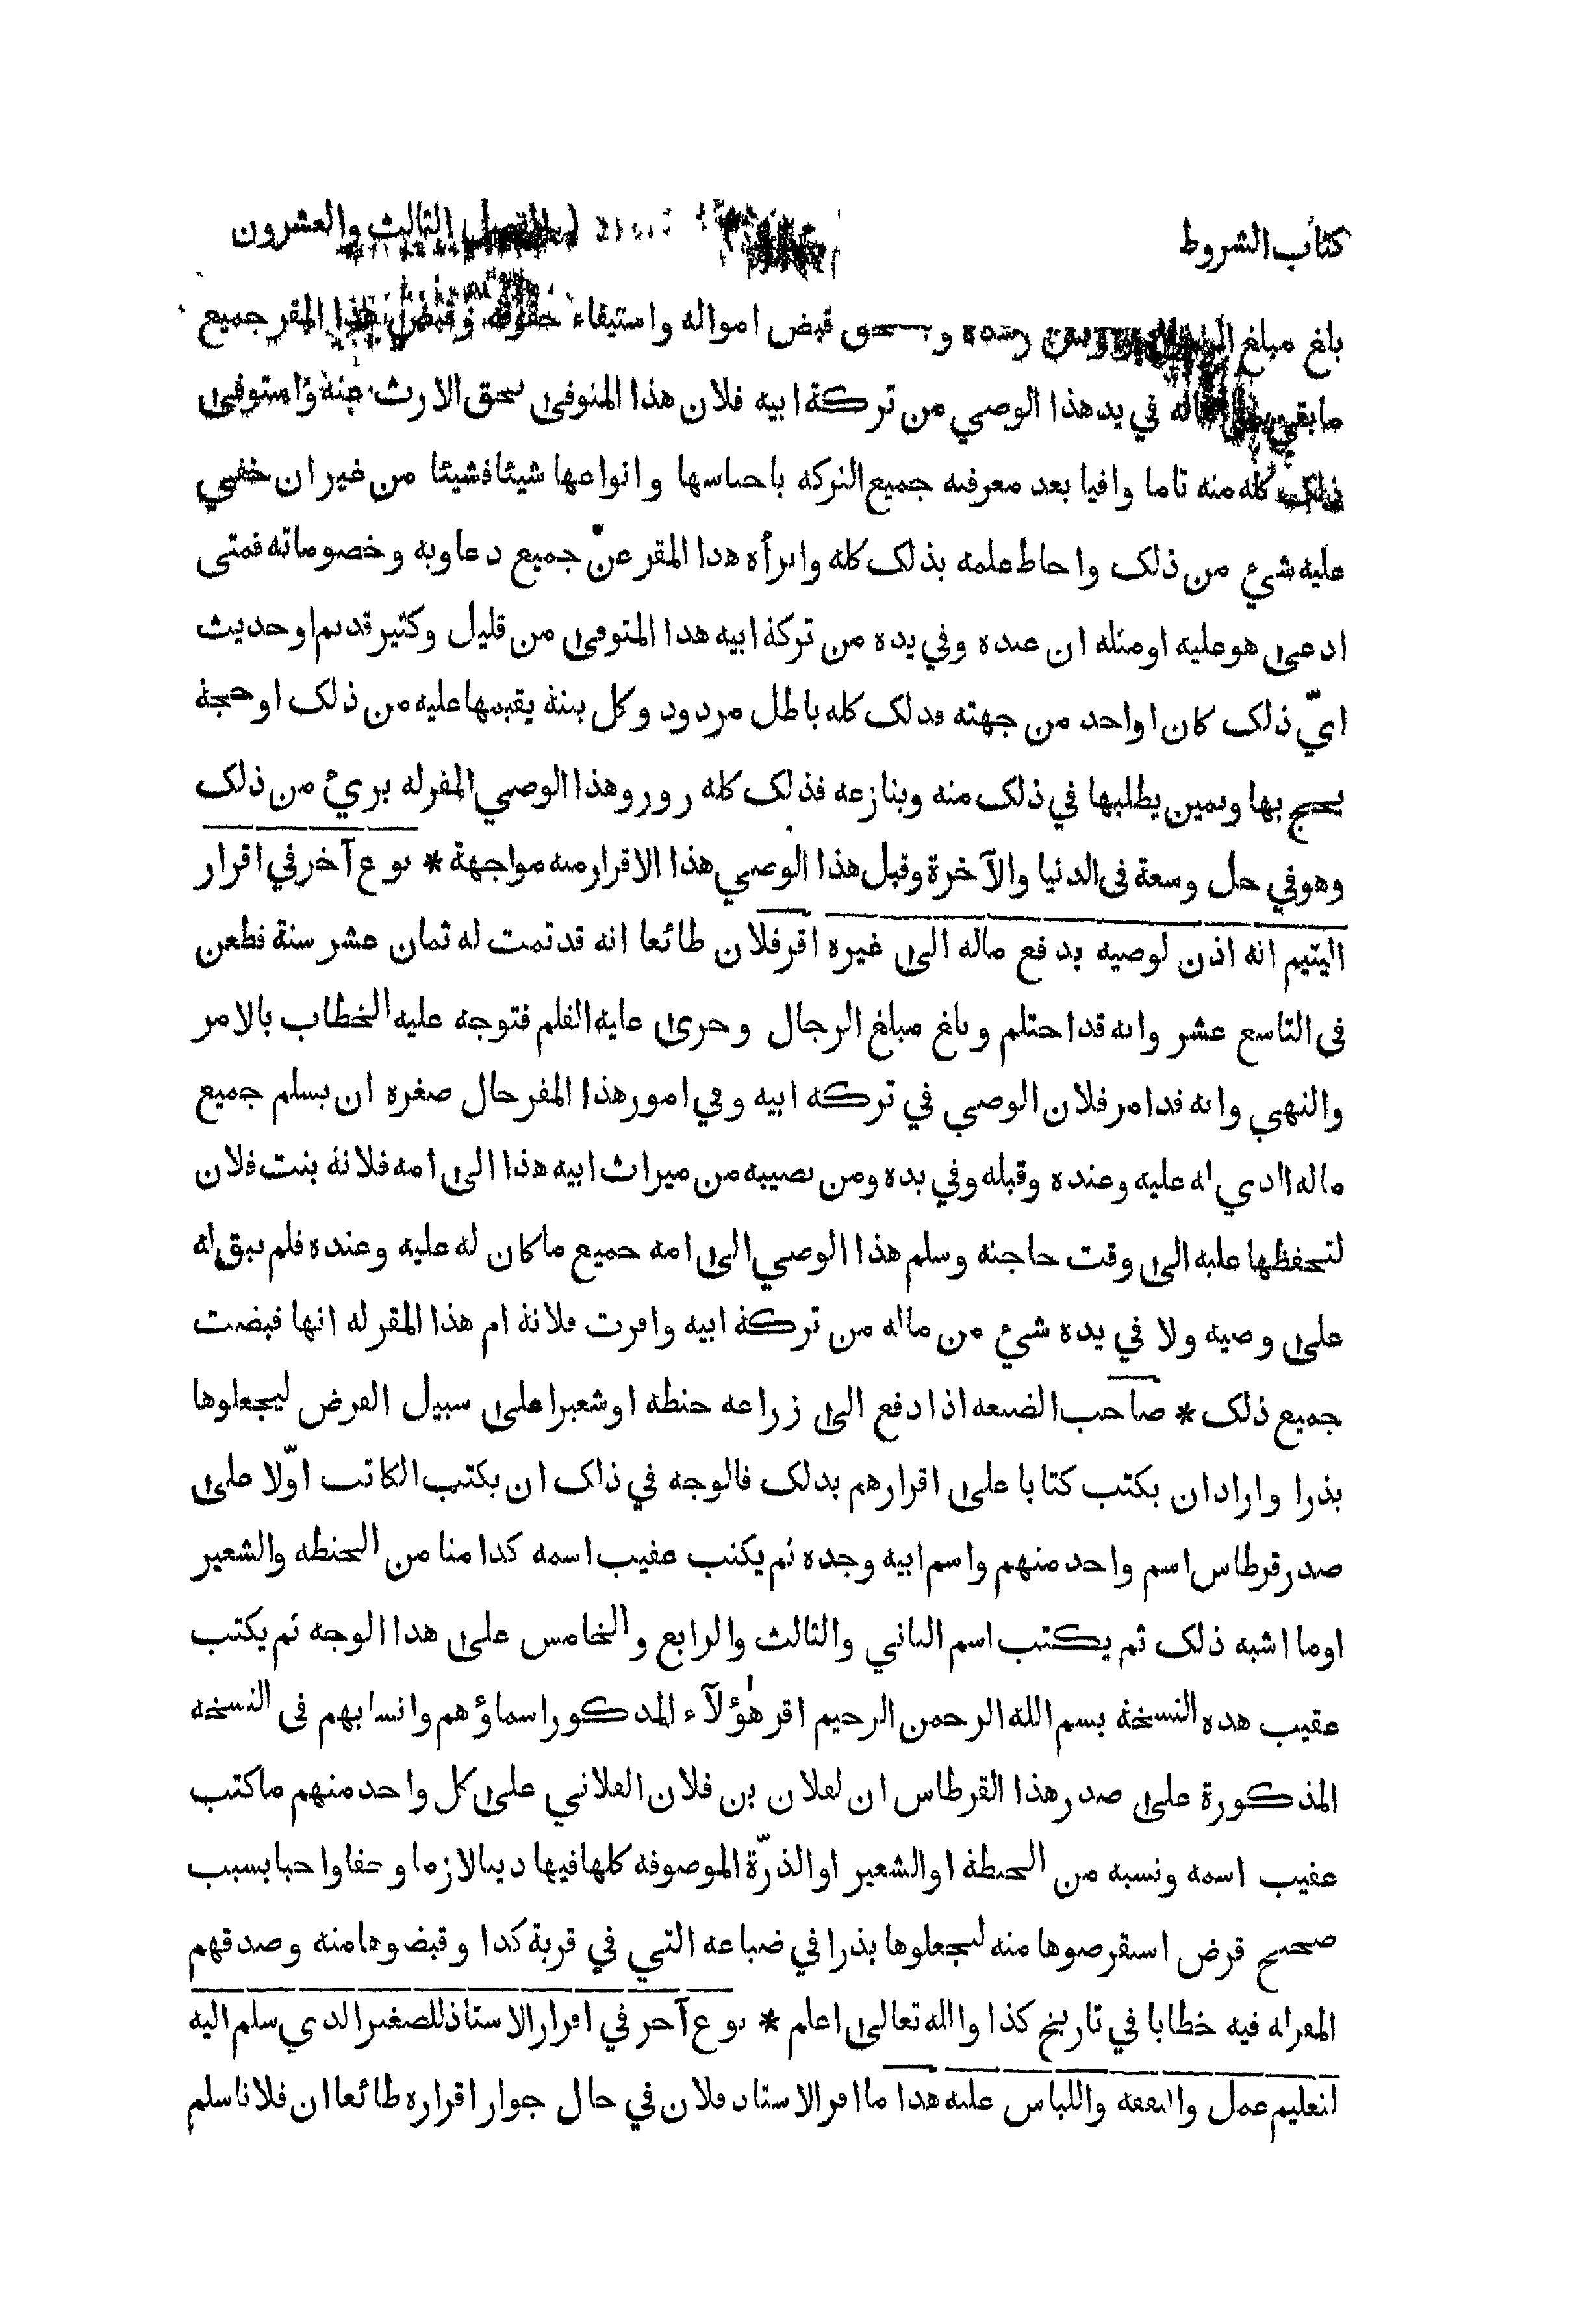 كتاب الشروط الفصل الثالث والعشرون
بلغ مبلغ قبض امواله واستيفاء حقوقه وقبض هذا المقر جميع
مابقي في يد هذا الوصي من تركة ابيه فلان هذا المتوفى بحق الارث منه واستوفى
ذلك كله منه تاما وافيا بعد معرفته جميع التركه باجناسها وانواعها شيئا فشيئا من غير ان خفي
عليه شيء من ذلك واحاط علمه بذلك كله وابرأه هذا المقر عن جميع دعاويه وخصوماته فمتى
ادعى هو عليه او مثله ان عنده وفي يده من تركة ابيه هذا المتوفى من قليل وكثير قديم او حديث
ايّ ذلك كان او احد من جهته فذلك كله باطل مردود وكل بينة يقيمها عليه من ذلك او حجة
يحتج بها ويمين يطلبها في ذلك منه وينازعه فذلك كله زور وهذا الوصي المقر له بريء من ذلك
وهو في حل وسعة فى الدنيا والآخرة وقبل هذا الوصي هذا الاقرار منه مواجهة * نوع آخر في اقرار
اليتيم انه اذن لوصيه بدفع ماله الى غيره اقر فلان طائعا انه قد تمت له ثمان عشر سنة فطعن
فى التاسع عشر وانه قد احتلم وبلغ مبلغ الرجال وجرى عليه القلم فتوجه عليه الخطاب بالامر
والنهي وانه قد امر فلان الوصي في تركه ابيه وفي امور هذا المقر حال صغره ان يسلم جميع
ماله الذي له عليه وعنده وقبله وفي يده ومن نصيبه من ميراث ابيه هذا الى امه فلانة بنت فلان
لتحفظها عليه الى وقت حاجته وسلم هذا الوصي الى امه جميع ما كان له عليه وعنده فلم يبق له
على وصيه ولا في يده شيء من ماله من تركة ابيه واقرت فلانة ام هذا المقر له انها قبضت
جميع ذلك * صاحب الضيعه اذا دفع الى زراعه حنطه او شعيرا على سبيل القرض ليجعلوها
بذرا واراد ان يكتب كتابا على اقرارهم بذلك فالوجه في ذلك ان يكتب الكاتب اوّلا على
صدر قرطاس اسم واحد منهم واسم ابيه وجده ثم يكتب عقيب اسمه كذا منا من الحنطه والشعير
او ما اشبه ذلك ثم يكتب اسم الثاني والثالث والرابع والخامس على هذا الوجه ثم يكتب
عقيب هذه النسخة بسم الله الرحمن الرحيم اقر هؤلآء المذكور اسماؤهم وانسابهم فى النسخه
المذكورة على صدر هذا القرطاس ان لفلان بن فلان الفلاني على كل واحد منهم ما كتب
عقيب اسمه ونسبه من الحنطة او الشعير او الذرّة الموصوفه كلها فيها دينا لازما وحقا واجبا بسبب
صحيح قرض استقرضوها منه ليجعلوها بذرا في ضياعه التي في قرية كذا وقبضوها منه وصدقهم
المقر له فيه خطابا في تاريخ كذا والله تعالى اعلم * نوع آخر في اقرار الاستاذ للصغير الذي سلم اليه
لتعليم عمل والنفقه واللباس عليه هذا ما اقر الاستاد فلان في حال جواز اقراره طائعا ان فلانا سلم